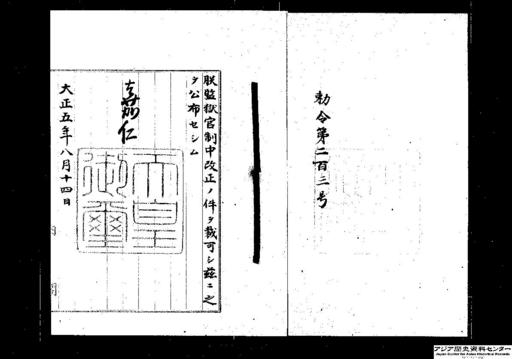 勅令第二百三号
朕監獄官制中改正ノ件ヲ裁可シ茲ニ之
ヲ公布セシム
嘉仁
天皇御璽
大正五年八月十四日
アジア歴史資料センター
Japan Center for Asian Historical Records